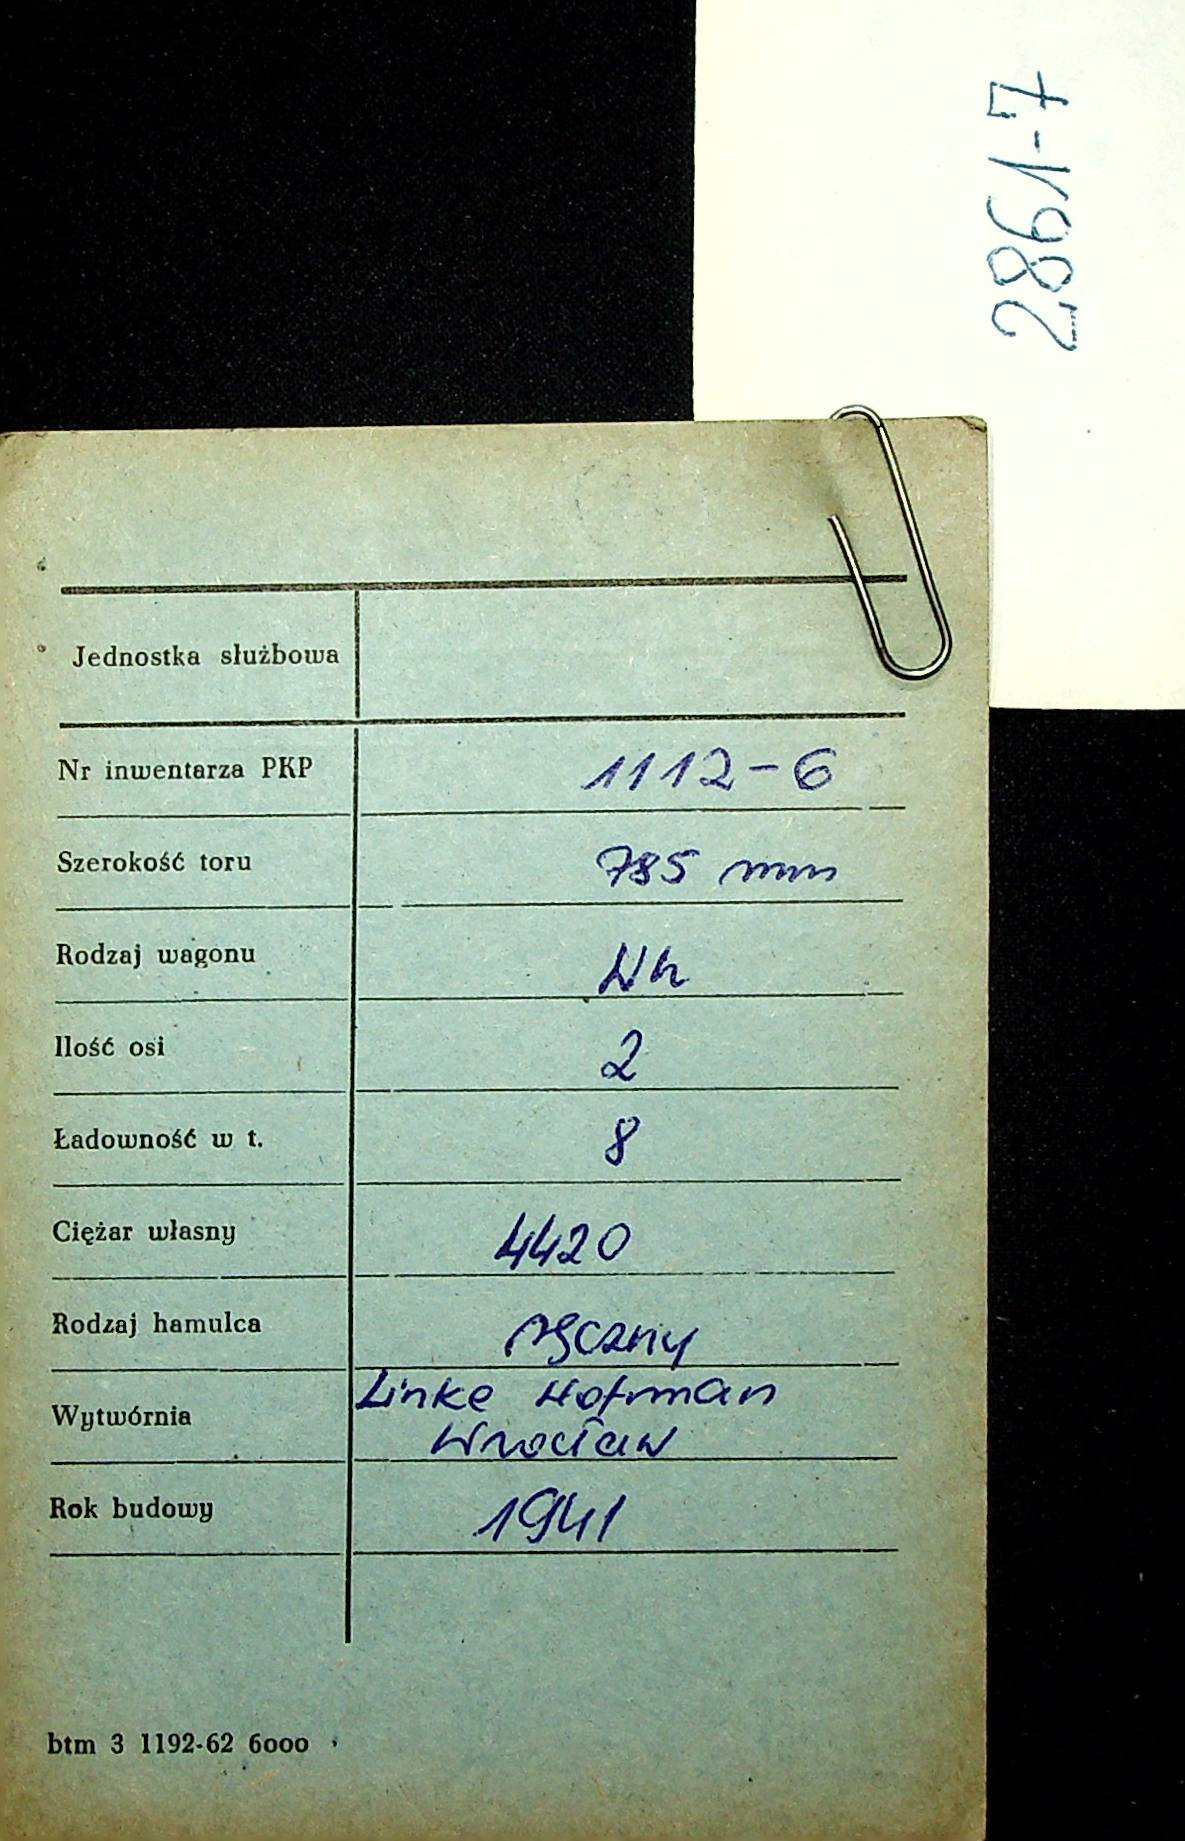 2861-7
Jednostka służbowa
Nr inwentarza PKP 1112-6
Szerokość toru 785 mm
Rodzaj wagonu Wh
Ilość osi 2
Ładowność w t. 8
Ciężar własny 4420
Rodzaj hamulca ręczny
Wytwórnia Linke Hofman
Wrocław
Rok budowy 1941
btm 3 1192-62 6ooo